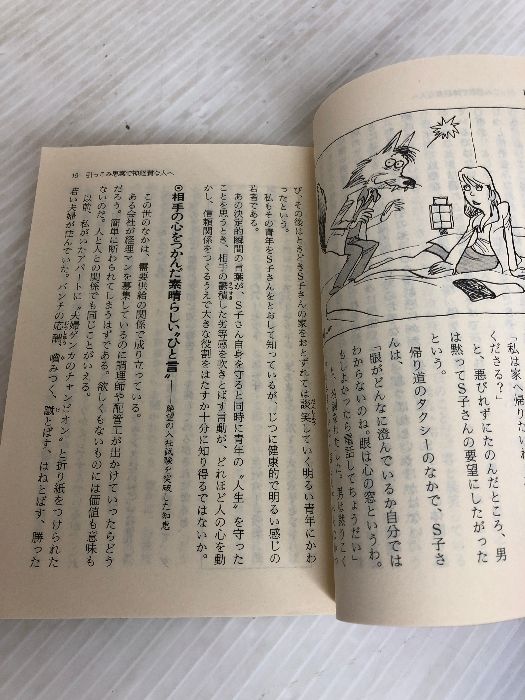 私は家へ帰りたい
くださる?」
と、悪びれずにたのんだところ、男
は黙ってS子さんの要望にしたがった
という。
帰り道のタクシーのなかで、S子さ
んは、
「眼がどんなに澄んでいるか自分では
わからないのね。眼は心の窓というわ。
もしよかったら電話してちょうだい」
男は黙りこく
19 引っこみ思案で神経質な人へ
び、その後はときどきS子さんの家をおとずれては談笑していく明るい青年にかわ
ったという。
私もその青年をS子さんをとおして知っているが、じつに健康的で明るい感じの
若者である。
あの決定的瞬間の言葉が、S子さん自身を守ると同時に青年の〝人生〟を守った
ことを思うとき、相手の鬱積した劣等感を吹きとばす言動が、どれほど人の心を動
かし、信頼関係をつくるうえで大きな役割をはたすか十分に知り得るではないか。
◎相手の心をつかんだ素晴らしい〝ひと言〟――絶望の入社試験を突破した知恵
この世のなかは、需要供給の関係で成り立っている。
ある会社が経理マンを募集しているのに調理師や配管工が出かけていったらどう
だろう。簡単に断わられてしまうはずである。欲しくもないものには価値も意味も
ないのだ。人と人との関係でも同じことがいえる。
以前、私がいたアパートに〝夫婦ゲンカのチャンピオン〟と折り紙をつけられた
若い夫婦が住んでいた。パンチの応酬、噛みつく、蹴とばす、はねとばす、勝った